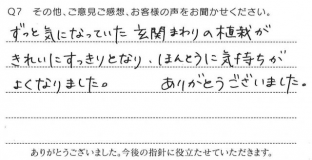 Q7 その他、ご意見ご感想、お客様の声をお聞かせください。
ずっと気になっていた玄関まわりの植栽が
きれいにすっきりとなり、ほんとうに気持ちが
よくなりました。 ありがとうございました。
ありがとうございました。今後の指針に役立たせていただきます。